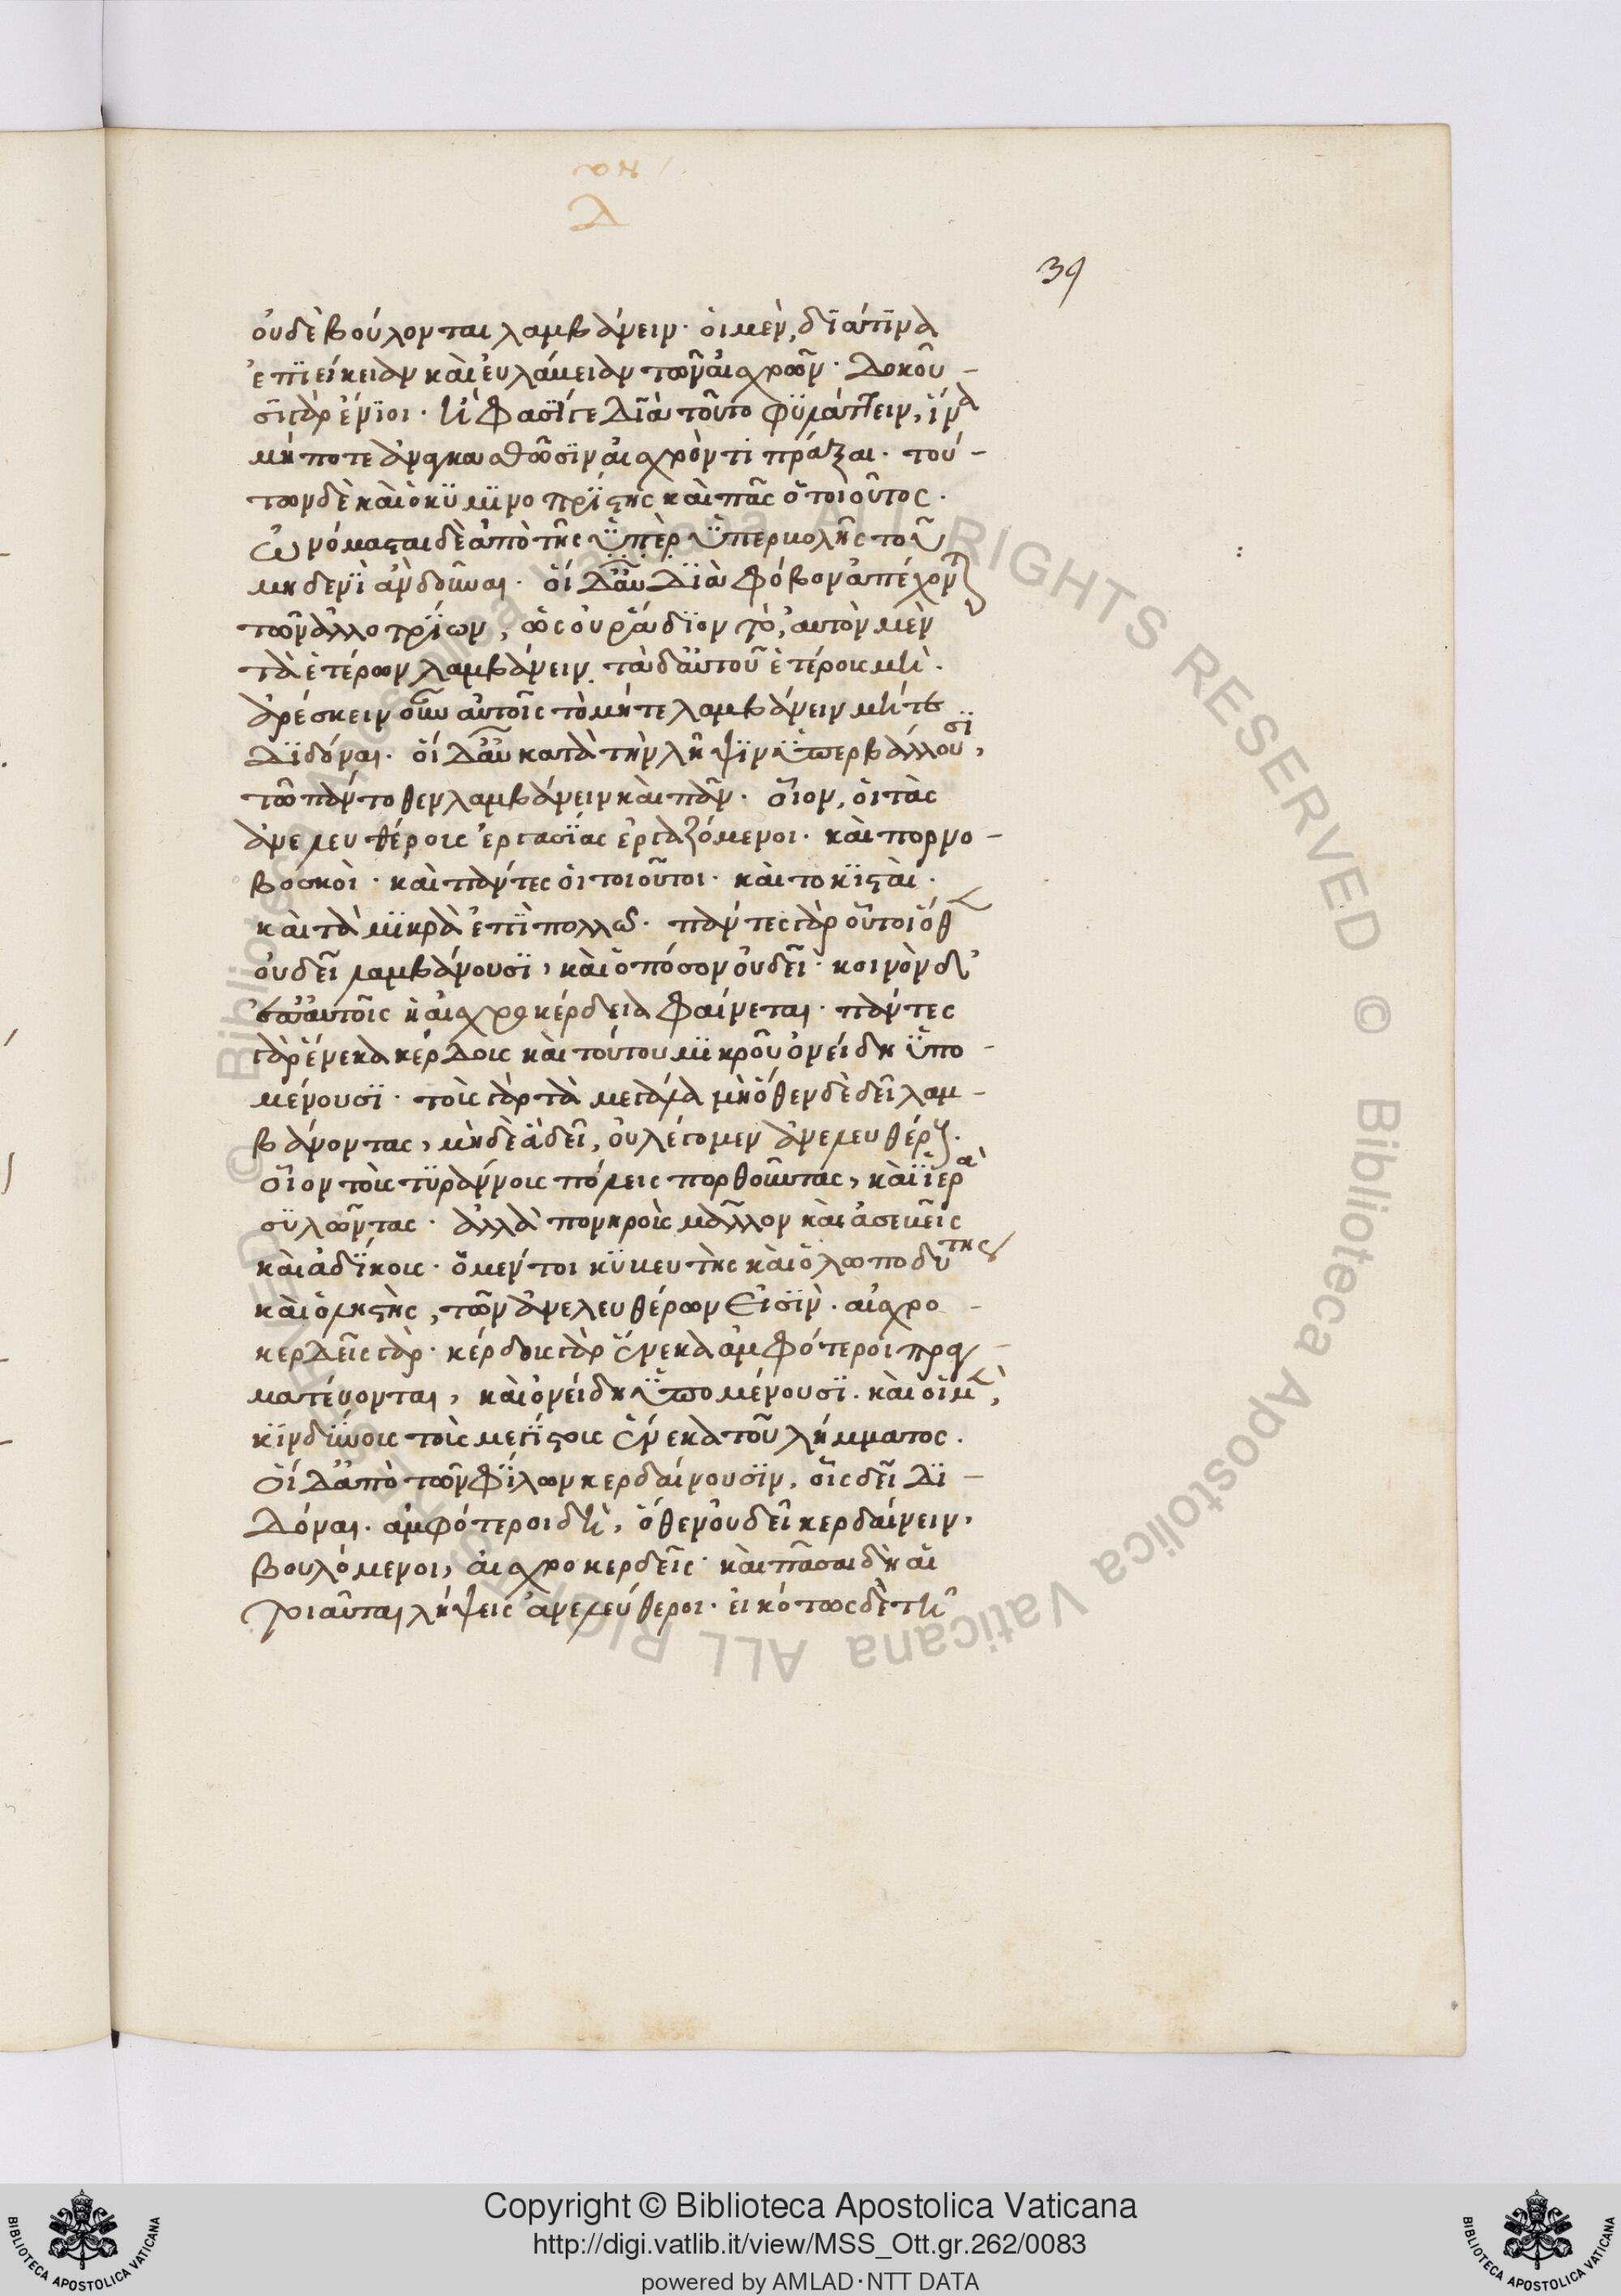 39
οὐδὲ βούλονται λαμβάνειν· οἱ μὲν, διά τινα
ἐπιείκειαν καὶ εὐλάβειαν τῶν αἰσχρῶν· δοκοῦ-
σι γὰρ ἔνιοι· ἢ φασί γε διὰ τοῦτο φυλάττειν, ἵνα
μή ποτε ἀναγκασθῶσιν αἰσχρόν τι πρᾶξαι· τού-
των δὲ καὶ ὁ κυμινοπρίστης καὶ πᾶς ὁ τοιοῦτος·
ὠνόμασται δὲ ἀπὸ τῆς ὑπὲρ ὑπερβολῆς τοῦ
μηδενὶ ἂν δοῦναι· οἱ δ' αὖ διὰ φόβον ἀπέχονται
τῶν ἀλλοτρίων, ὡς οὐ ῥάδιον τὸ, αὐτὸν μὲν
τὰ ἑτέρων λαμβάνειν, τὰ δ' αὐτοῦ ἑτέρους μή·
ἀρέσκειν οὖν αὐτοῖς τὸ μήτε λαμβάνειν μήτε
διδόναι· οἱ δ' αὖ κατὰ τὴν λῆψιν ὑπερβάλλουσι,
τῷ πάντοθεν λαμβάνειν καὶ πᾶν· οἷον, οἱ τὰς
ἀνελευθέρους ἐργασίας ἐργαζόμενοι· καὶ πορνο-
βοσκοὶ· καὶ πάντες οἱ τοιοῦτοι· καὶ τοκισταὶ·
καὶ τὰ μικρὰ ἐπὶ πολλῷ· πάντες γὰρ οὗτοι ὅθεν
οὐ δεῖ λαμβάνουσι, καὶ ὁπόσον οὐ δεῖ· κοινὸν δ'
ἐπ' αὐτοῖς ἡ αἰσχροκέρδεια φαίνεται· πάντες
γὰρ ἕνεκα κέρδους καὶ τούτου μικροῦ ὀνείδη ὑπο-
μένουσι· τοὺς γὰρ τὰ μεγάλα μὴ ὅθεν δὲ δεῖ λαμ-
βάνοντας, μηδὲ ἃ δεῖ, οὐ λέγομεν ἀνελευθέρους·
οἷον τοὺς τυράννους πόλεις πορθοῦντας, καὶ ἱερὰ
συλῶντας· ἀλλὰ πονηροὺς μᾶλλον καὶ ἀσεβεῖς
καὶ ἀδίκους· ὁ μέντοι κυβευτὴς καὶ ὁ λωποδύτης
καὶ ὁ λῃστὴς, τῶν ἀνελευθέρων εἰσὶν· αἰσχρο-
κερδεῖς γὰρ· κέρδους γὰρ ἕνεκα ἀμφότεροι πραγ-
ματεύονται, καὶ ὀνείδη ὑπομένουσι· καὶ οἱ μὲν,
κινδύνους τοὺς μεγίστους ἕνεκα τοῦ λήμματος·
οἱ δ' ἀπὸ τῶν φίλων κερδαίνουσιν, οἷς δεῖ δι-
δόναι· ἀμφότεροι δὴ, ὅθεν οὐ δεῖ κερδαίνειν,
βουλόμενοι, αἰσχροκερδεῖς· καὶ πᾶσαι δὴ αἱ
τοιαῦται λήψεις ἀνελεύθεροι· εἰκότως δὲ τῇ
Copyright © Biblioteca Apostolica Vaticana
http://digi.vatlib.it/view/MSS_Ott.gr.262/0083
powered by AMLAD·NTT DATA